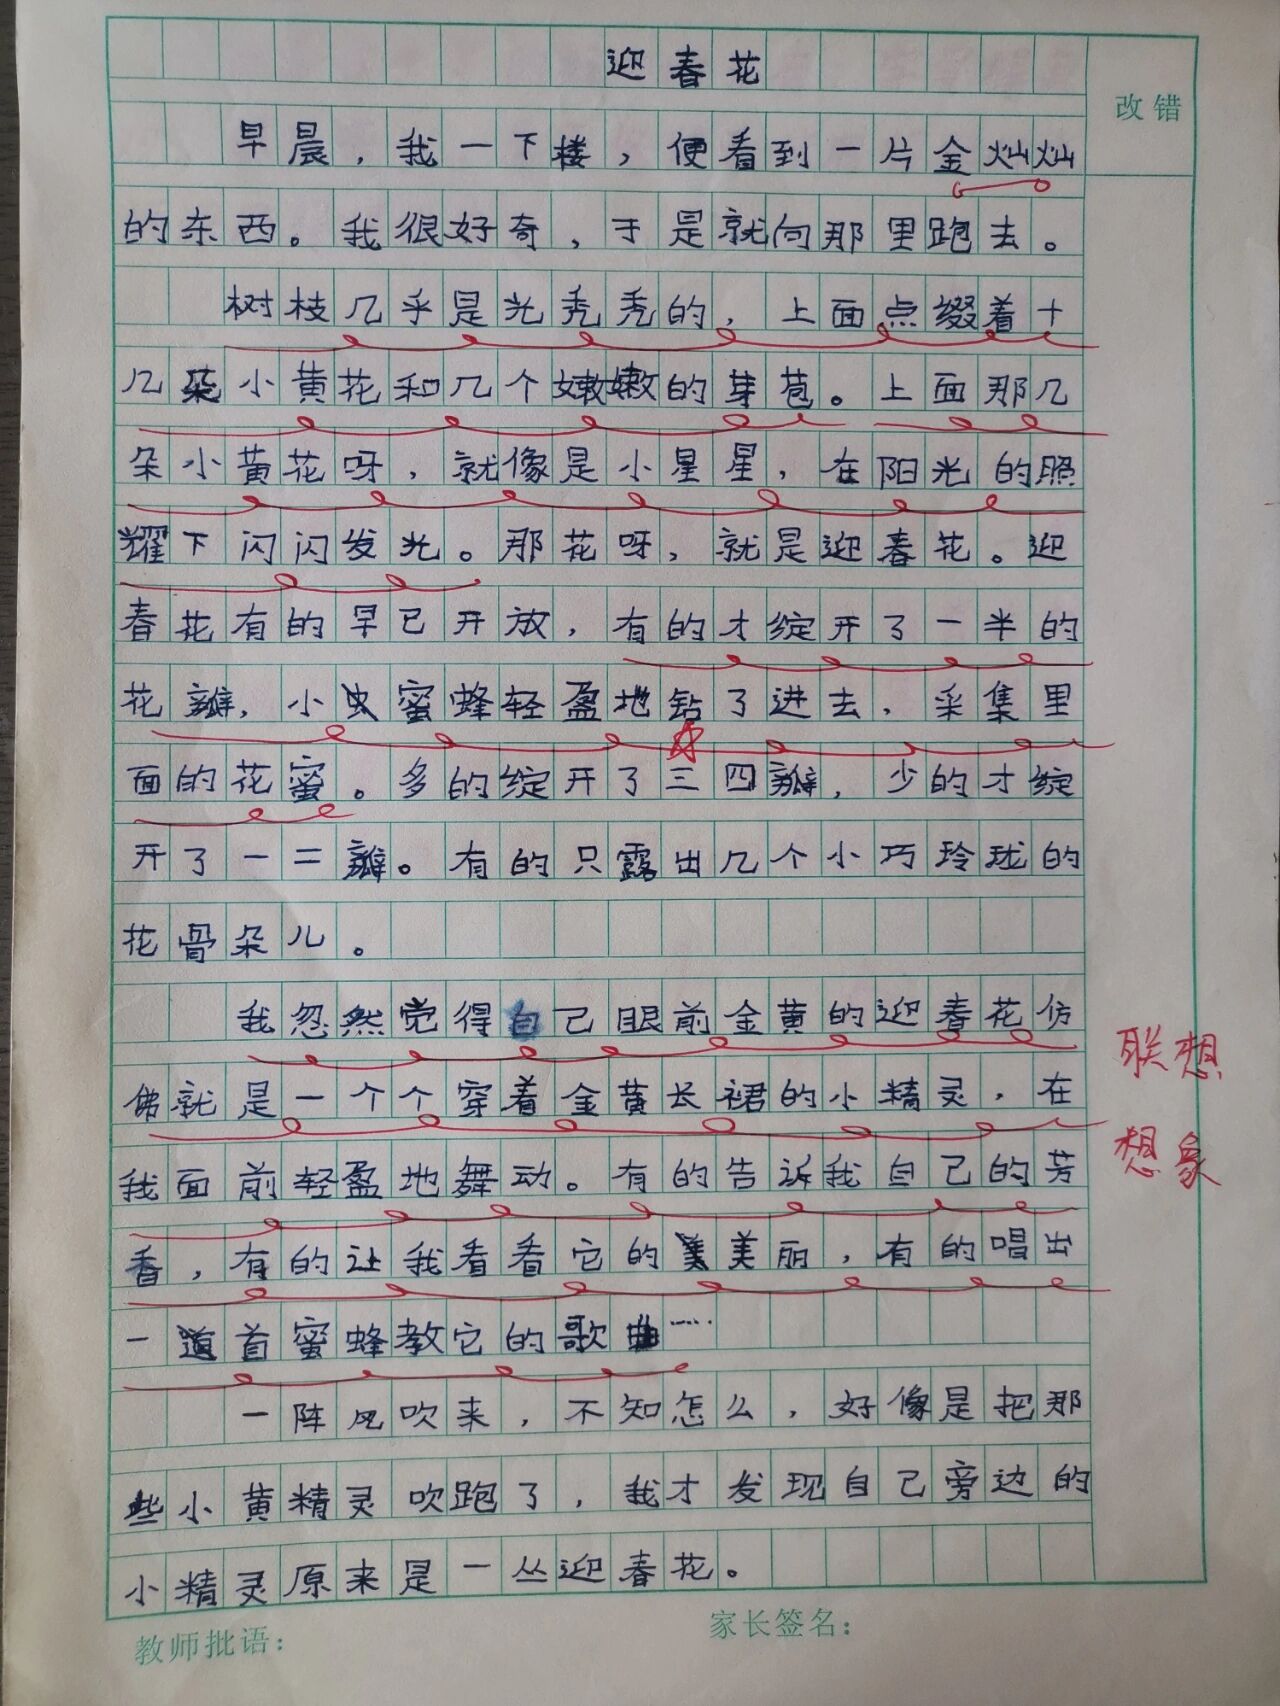 迎春花
改错
早晨，我一下楼，便看到一片金灿灿
的东西。我很好奇，于是就向那里跑去。
树枝几乎是光秃秃的，上面点缀着十
几朵小黄花和几个嫩嫩的芽苞。上面那几
朵小黄花呀，就像是小星星，在阳光的照
耀下闪闪发光。那花呀，就是迎春花。迎
春花有的早已开放，有的才绽开了一半的
花瓣，小蜜蜂轻盈地钻了进去，采集里
面的花蜜。多的绽开了三四瓣，少的才绽
开了一二瓣。有的只露出几个小巧玲珑的
花骨朵儿。
我忽然觉得自己眼前金黄的迎春花仿
佛就是一个个穿着金黄长裙的小精灵，在
联想
我面前轻盈地舞动。有的告诉我自己的芳
想象
香，有的让我看看它的美丽，有的唱出
一首蜜蜂教它的歌曲……
一阵风吹来，不知怎么，好像是把那
些小黄精灵吹跑了，我才发现自己旁边的
小精灵原来是一丛迎春花。
教师批语：
家长签名：